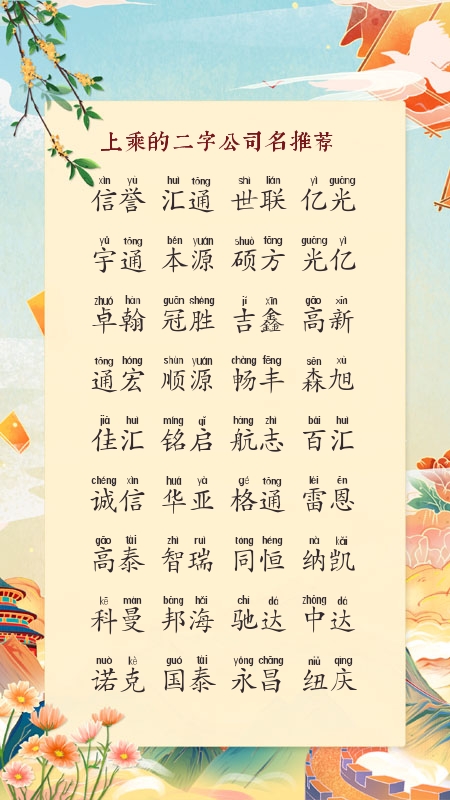 上乘的二字公司名推荐
xìn yù huì tōng shì lián yì guāng
信誉 汇通 世联 亿光
yǔ tōng běn yuán shuò fāng guāng yì
宇通 本源 硕方 光亿
zhuó hàn guān shèng jí xīn gāo xīn
卓翰 冠胜 吉鑫 高新
tōng hóng shùn yuán chàng fēng sēn xù
通宏 顺源 畅丰 森旭
jiā huì míng qǐ háng zhì bǎi huì
佳汇 铭启 航志 百汇
chéng xìn huá yà gé tōng léi ēn
诚信 华亚 格通 雷恩
gāo tài zhì ruì tóng héng nà kǎi
高泰 智瑞 同恒 纳凯
kē màn bāng hǎi chí dá zhōng dá
科曼 邦海 驰达 中达
nuò kè guó tài yǒng chāng niǔ qìng
诺克 国泰 永昌 纽庆